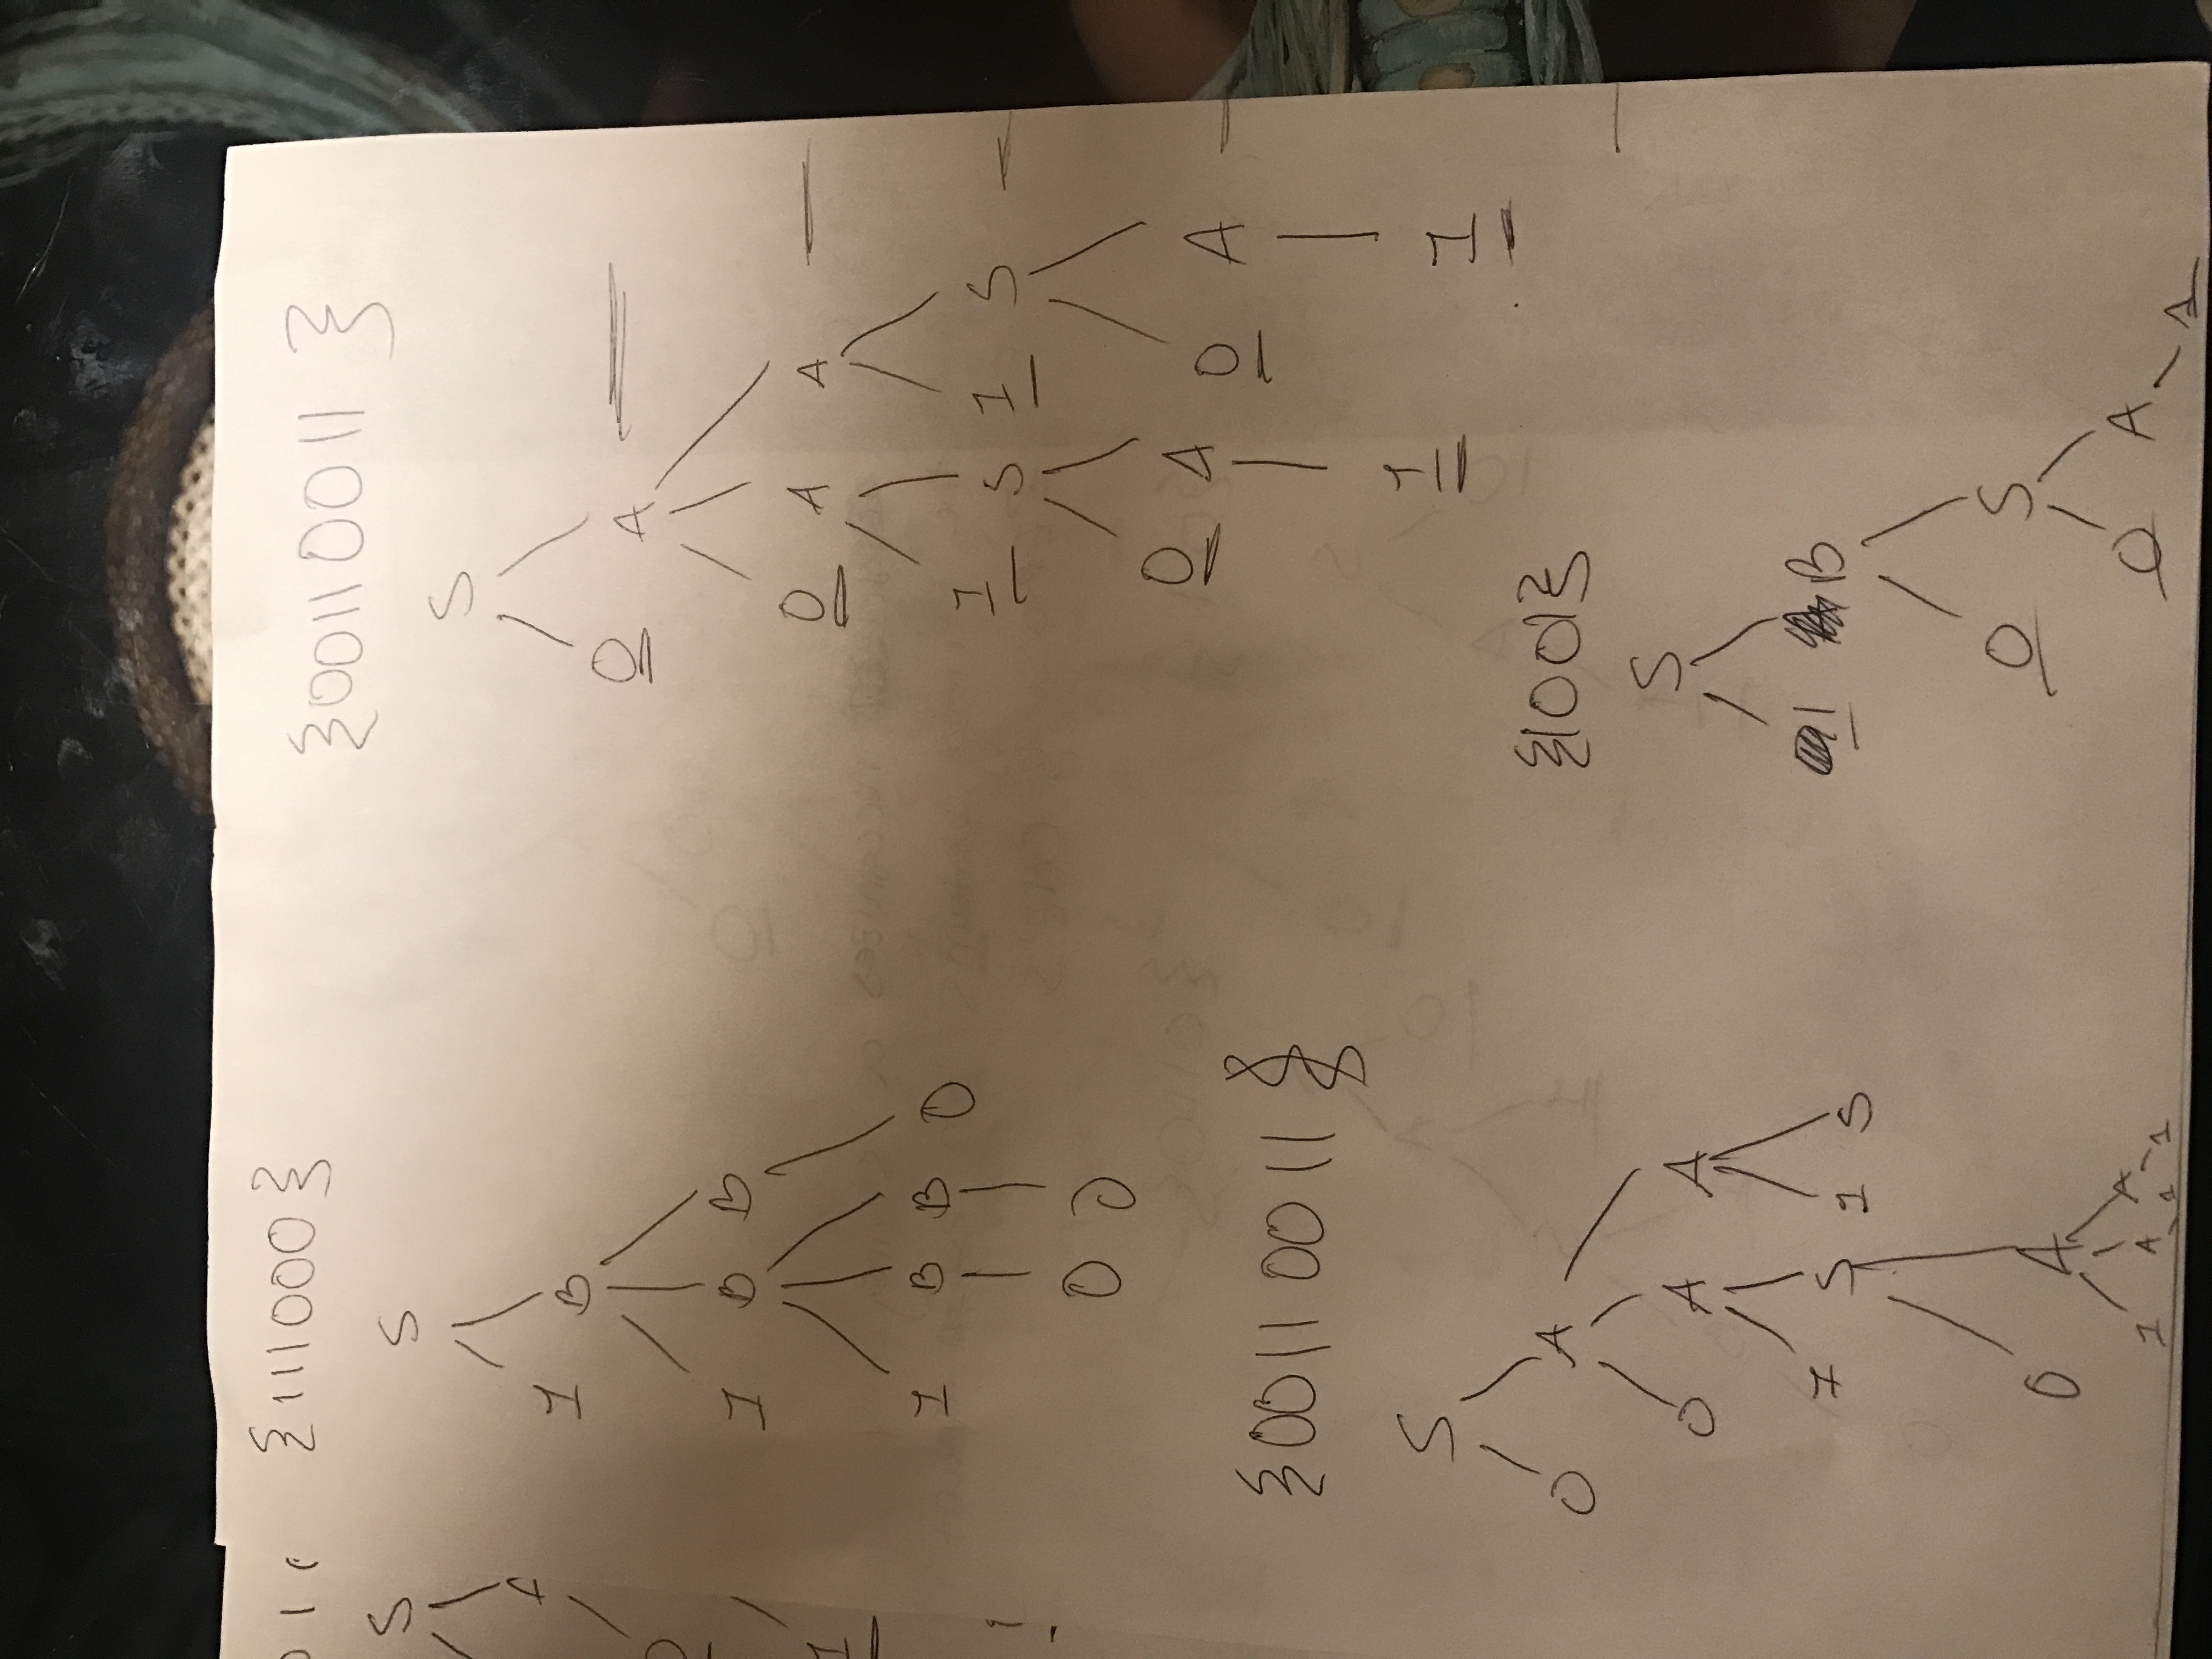 {111000}
S
1 B
1 B B
1 B B 0
0 0
{00110011}
S
0 A
0 A A
1 S 1 S
0 A
1 A A
1 1
{00110011}
S
0 A
0 A A
1 S 1 S
0 A 0 A
1 1
{1001}
S
1 B
0 S
0 A
1
S
1